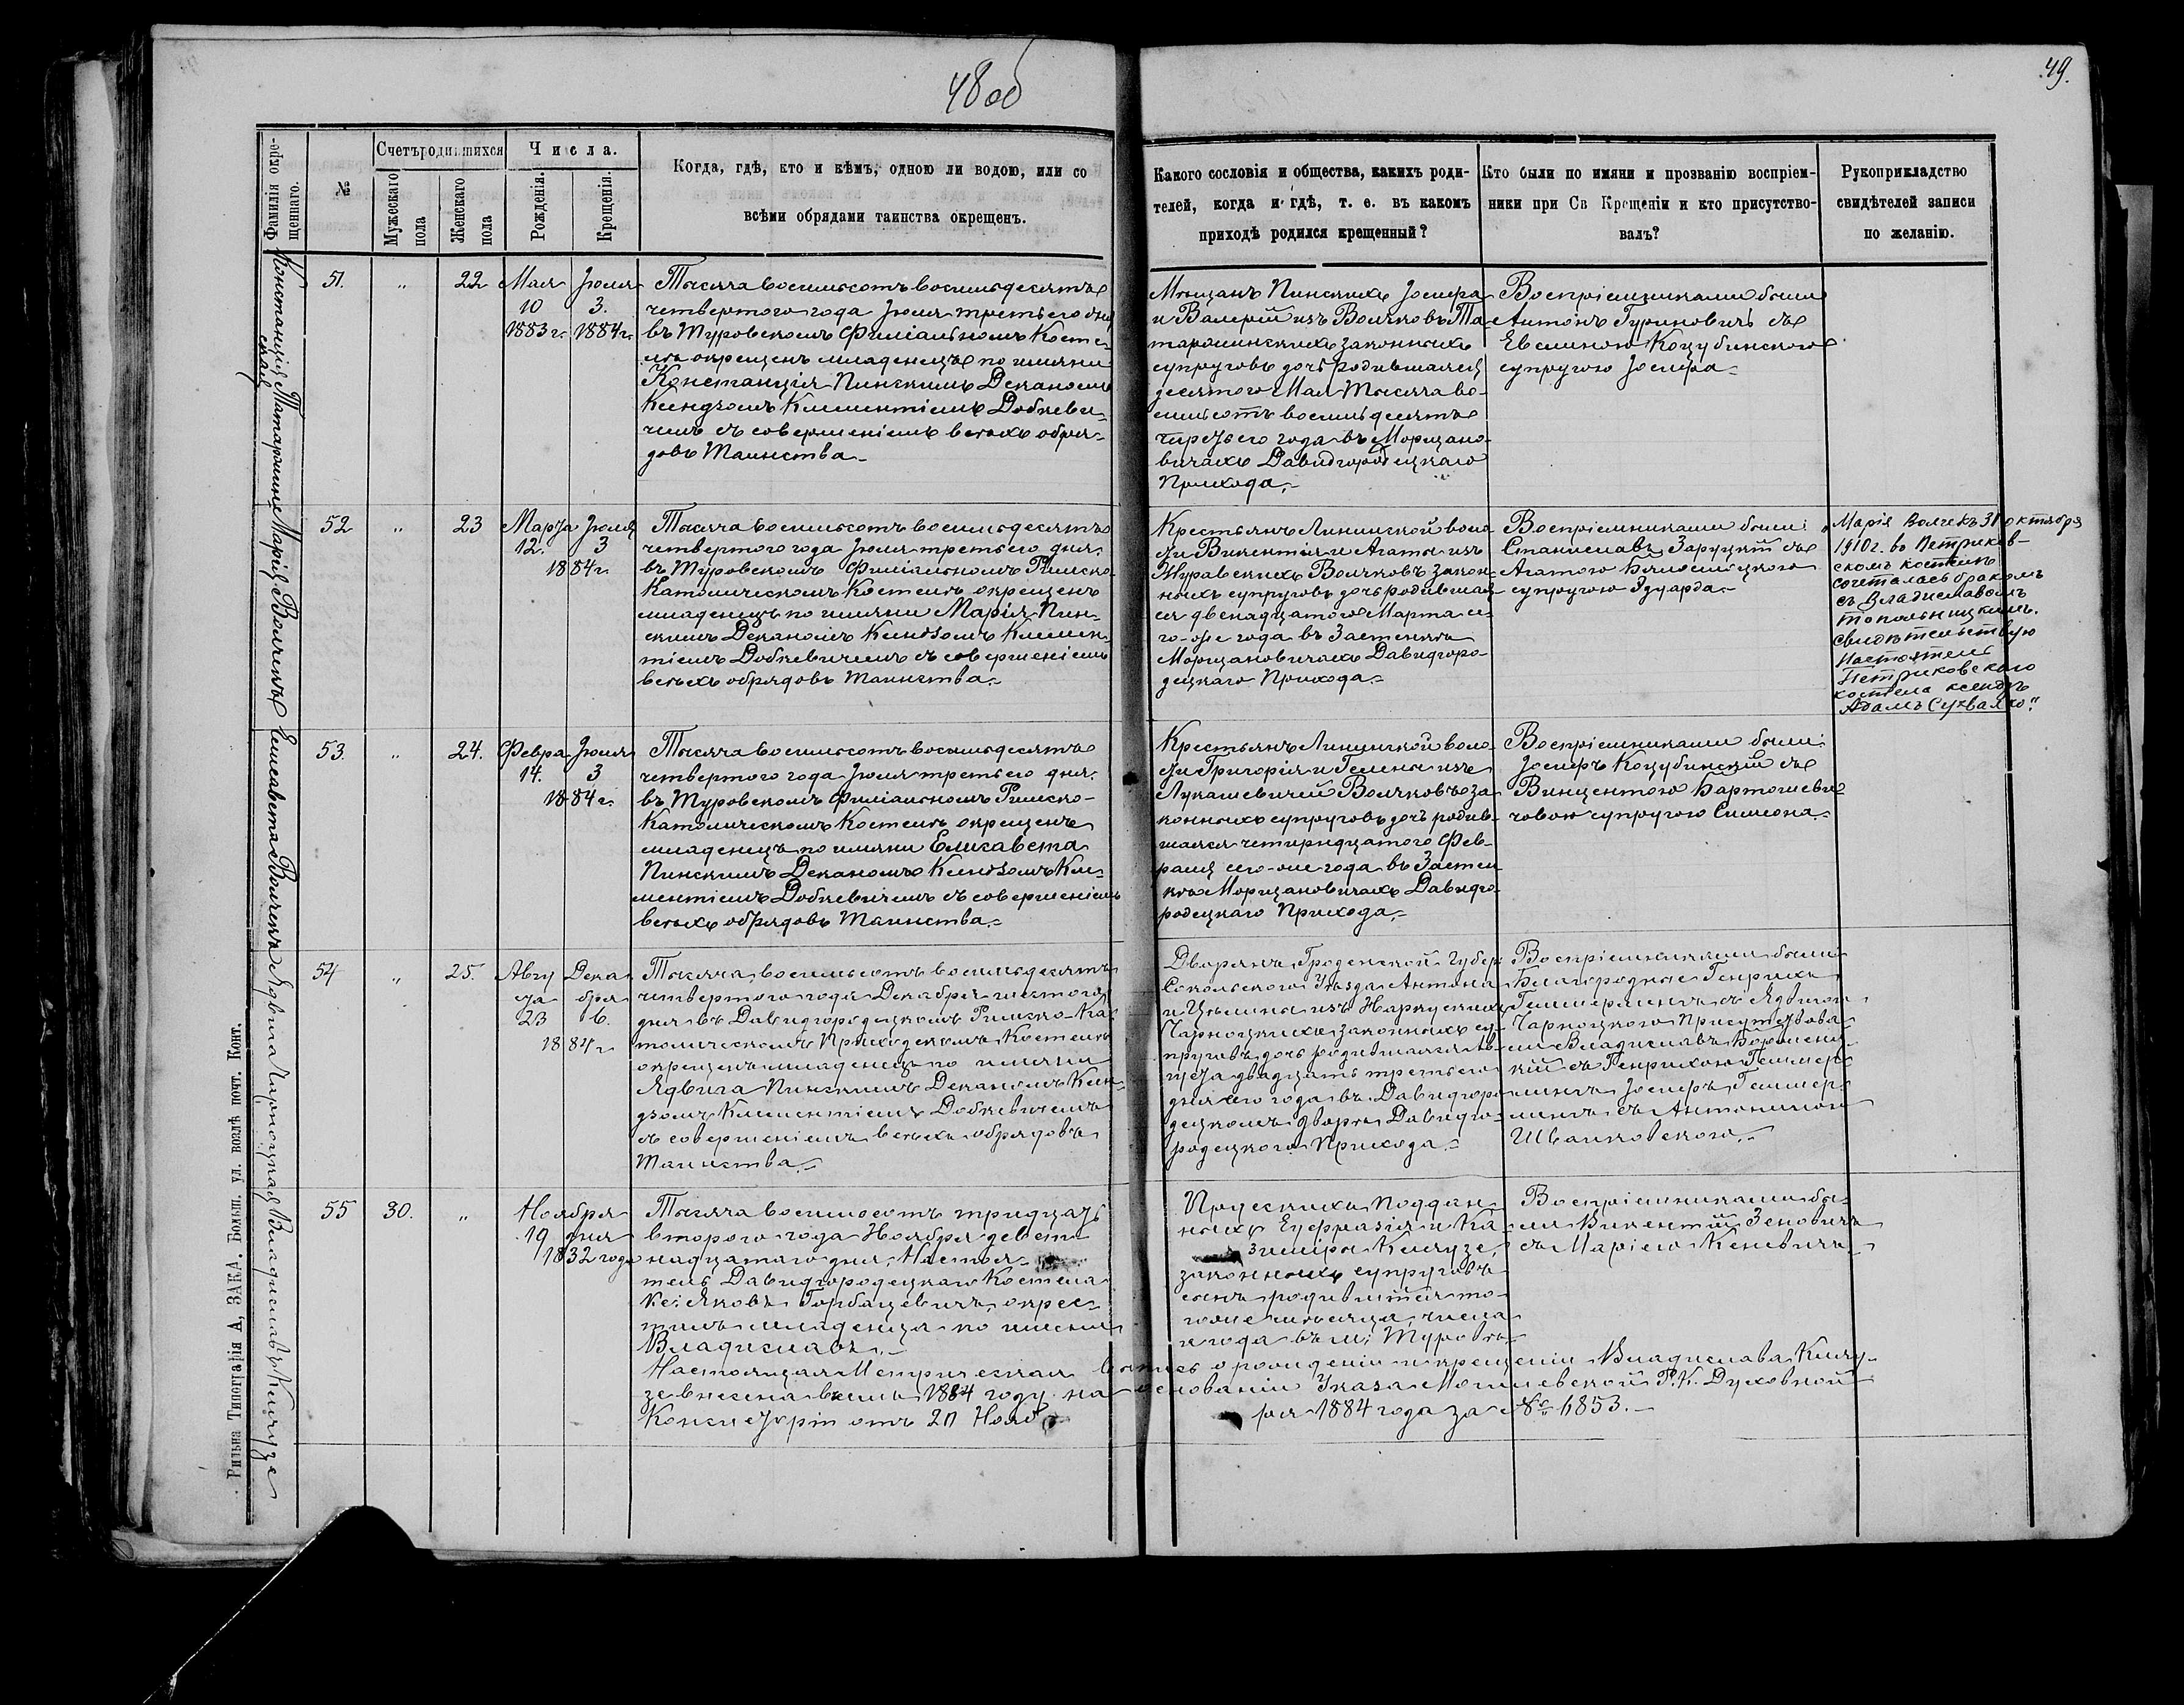 48 об
49.
Фамилія и имя окре-
щеннаго.
№
Счетъ родившихся
Мужескаго
пола
Женскаго
пола
Числа.
Рожденія.
Крещенія.
Когда, гдѣ, кто и кѣмъ, одною ли водою, или со
всѣми обрядами таинства окрещенъ.
Какого сословія и общества, какихъ роди-
телей, когда и гдѣ, т. е. въ какомъ
приходѣ родился крещенный?
Кто были по имяни и прозванію воспріем-
ники при Св Крещеніи и кто присутство-
валъ?
Рукоприкладство
свидѣтелей записи
по желанію.
Констанція
51.
"
22
Мая
10
1883 г.
Іюля
3.
1884 г.
Тысяча восемьсотъ восемьдесятъ
четвертого года Іюля третьего дня
въ Туровскомъ Филіальномъ Косте-
лѣ окрещенъ младенецъ по имяни
Констанція Пинскимъ Деканомъ
Ксендзомъ Климентіемъ Добкеви-
чемъ съ совершеніемъ всѣхъ обря-
довъ Таинства.
Мѣщанъ Пинскихъ Іосифа
и Валерій изъ Волчковъ Та-
законныхъ
супруговъ дочь родившаяся
десятого Мая Тысяча во-
семьсотъ восемьдесятъ
третьего года въ Морщано-
вичахъ Давидгородецкаго
Прихода.
Воспріемниками были
Антонъ Гуриновичъ съ
Евелиною Коцубинского
супругою Іосифа
52
"
23
Марта
12.
Іюля
3
1884 г.
Марія Волчекъ
Тысяча восемьсотъ восемьдесятъ
четвертого года Іюля третьего дня
въ Туровскомъ Филіальномъ Римско-
Католическомъ Костелѣ окрещенъ
младенецъ по имяни Марія Пин-
скимъ Деканомъ Ксендзомъ Климен-
тіемъ Добкевичемъ съ совершеніемъ
всѣхъ обрядовъ Таинства.
Крестьянъ Лининской воло-
сти Викентія и Агаты изъ
Журавскихъ Волчковъ закон-
ныхъ супруговъ дочь родившая-
ся двенадцатого Марта се-
го-же года въ Застенкѣ
Морщановичахъ Давидгоро-
децкаго Прихода.
Воспріемниками были:
Станиславъ Заруцкій съ
Агатою
супругою Эдуарда
„Марія Волчекъ 31 октября
1910 г. во Петриков-
скомъ костелѣ
сочеталась бракомъ
съ Владиславомъ
Топольницкимъ.
Свидѣтельствую
Настоятель
Петриковского
костела ксендзъ
Адамъ
53.
"
24.
Февра
14.
Іюля
3
1884 г.
Елисавета Волчекъ
Тысяча восемьсотъ восемьдесятъ
четвертого года Іюля третьего дня
въ Туровскомъ Филіальномъ Римско-
Католическомъ Костелѣ окрещенъ
младенецъ по имяни Елисавета
Пинскимъ Деканомъ Ксендзомъ Кли-
ментіемъ Добкевичемъ съ совершеніемъ
всѣхъ обрядовъ Таинства.
Крестьянъ воло-
сти Григорія и Гелены изъ
Лукашевичей Волчковъ за-
конныхъ супруговъ дочь родив-
шаяся четырнадцатого Фев-
раля сего-же года въ Застен-
кѣ Морщановичахъ Давидго-
родецкаго Прихода.
Воспріемниками были:
Іосифъ Коцубинскій съ
Винцентою Бартошеви-
човою супругою Симеона.
54
"
25.
Авгу
ста
23
Дека-
бря
6.
1884 г.
Ядвига Чарноцкая
Тысяча восемьсотъ восемьдесятъ
четвертого года Декабря шестого
дня въ Давидгородецкомъ Римско-Ка-
толическомъ Приходскомъ Костелѣ
окрещенъ младенецъ по имяни
Ядвига Пинскимъ Деканомъ Ксен-
дзомъ Климентіемъ Добкевичемъ
съ совершеніемъ всѣхъ обрядовъ
Таинства.
Дворянъ Гроденской Губер
Сокольского Уѣзда Антона
и изъ
Чарноцкихъ законныхъ су-
пруговъ дочь родившаяся Ав-
густа двадцать третьего
дня сего года въ Давидгоро-
децкомъ дворѣ Давидго-
родецкого Прихода.
Воспріемниками были
Благородные Генрихъ
съ Ядвигою
Чарноцкого Присутствова-
ли Владиславъ
съ
Іосифъ
съ Антониною
55
30.
"
Ноября
19 дня
1832 года
Владиславъ Клаузе
Тысяча восемьсотъ тридцать
второго года Ноября девят-
надцатаго дня, Настоя-
тель Давидгородецкаго Костела
Кс: Яковъ Горбацевичъ окрес-
тилъ младенца по имени
Владиславъ.
Прусскихъ Поддан-
ныхъ Ка-
зиміры Клаузе,
законныхъ супруговъ
сынъ родившійся то-
гоже мѣсяца, числа
и года въ м: Туровѣ
Воспріемниками бы-
ли Викентій Зеновичъ
съ Маріею Кеневичъ
Настоящая Метрическая запись о рожденіи и крещеніи Владислава Клау-
зе внесена въ 1884 году на основаніи Указа Могилевской Р. К. Духовной
Консисторіи отъ 20 Нояб ря 1884 года за № 6853.
Вильна Типографія А, ЗАКА. Больш. ул. возлѣ почт. Конт.